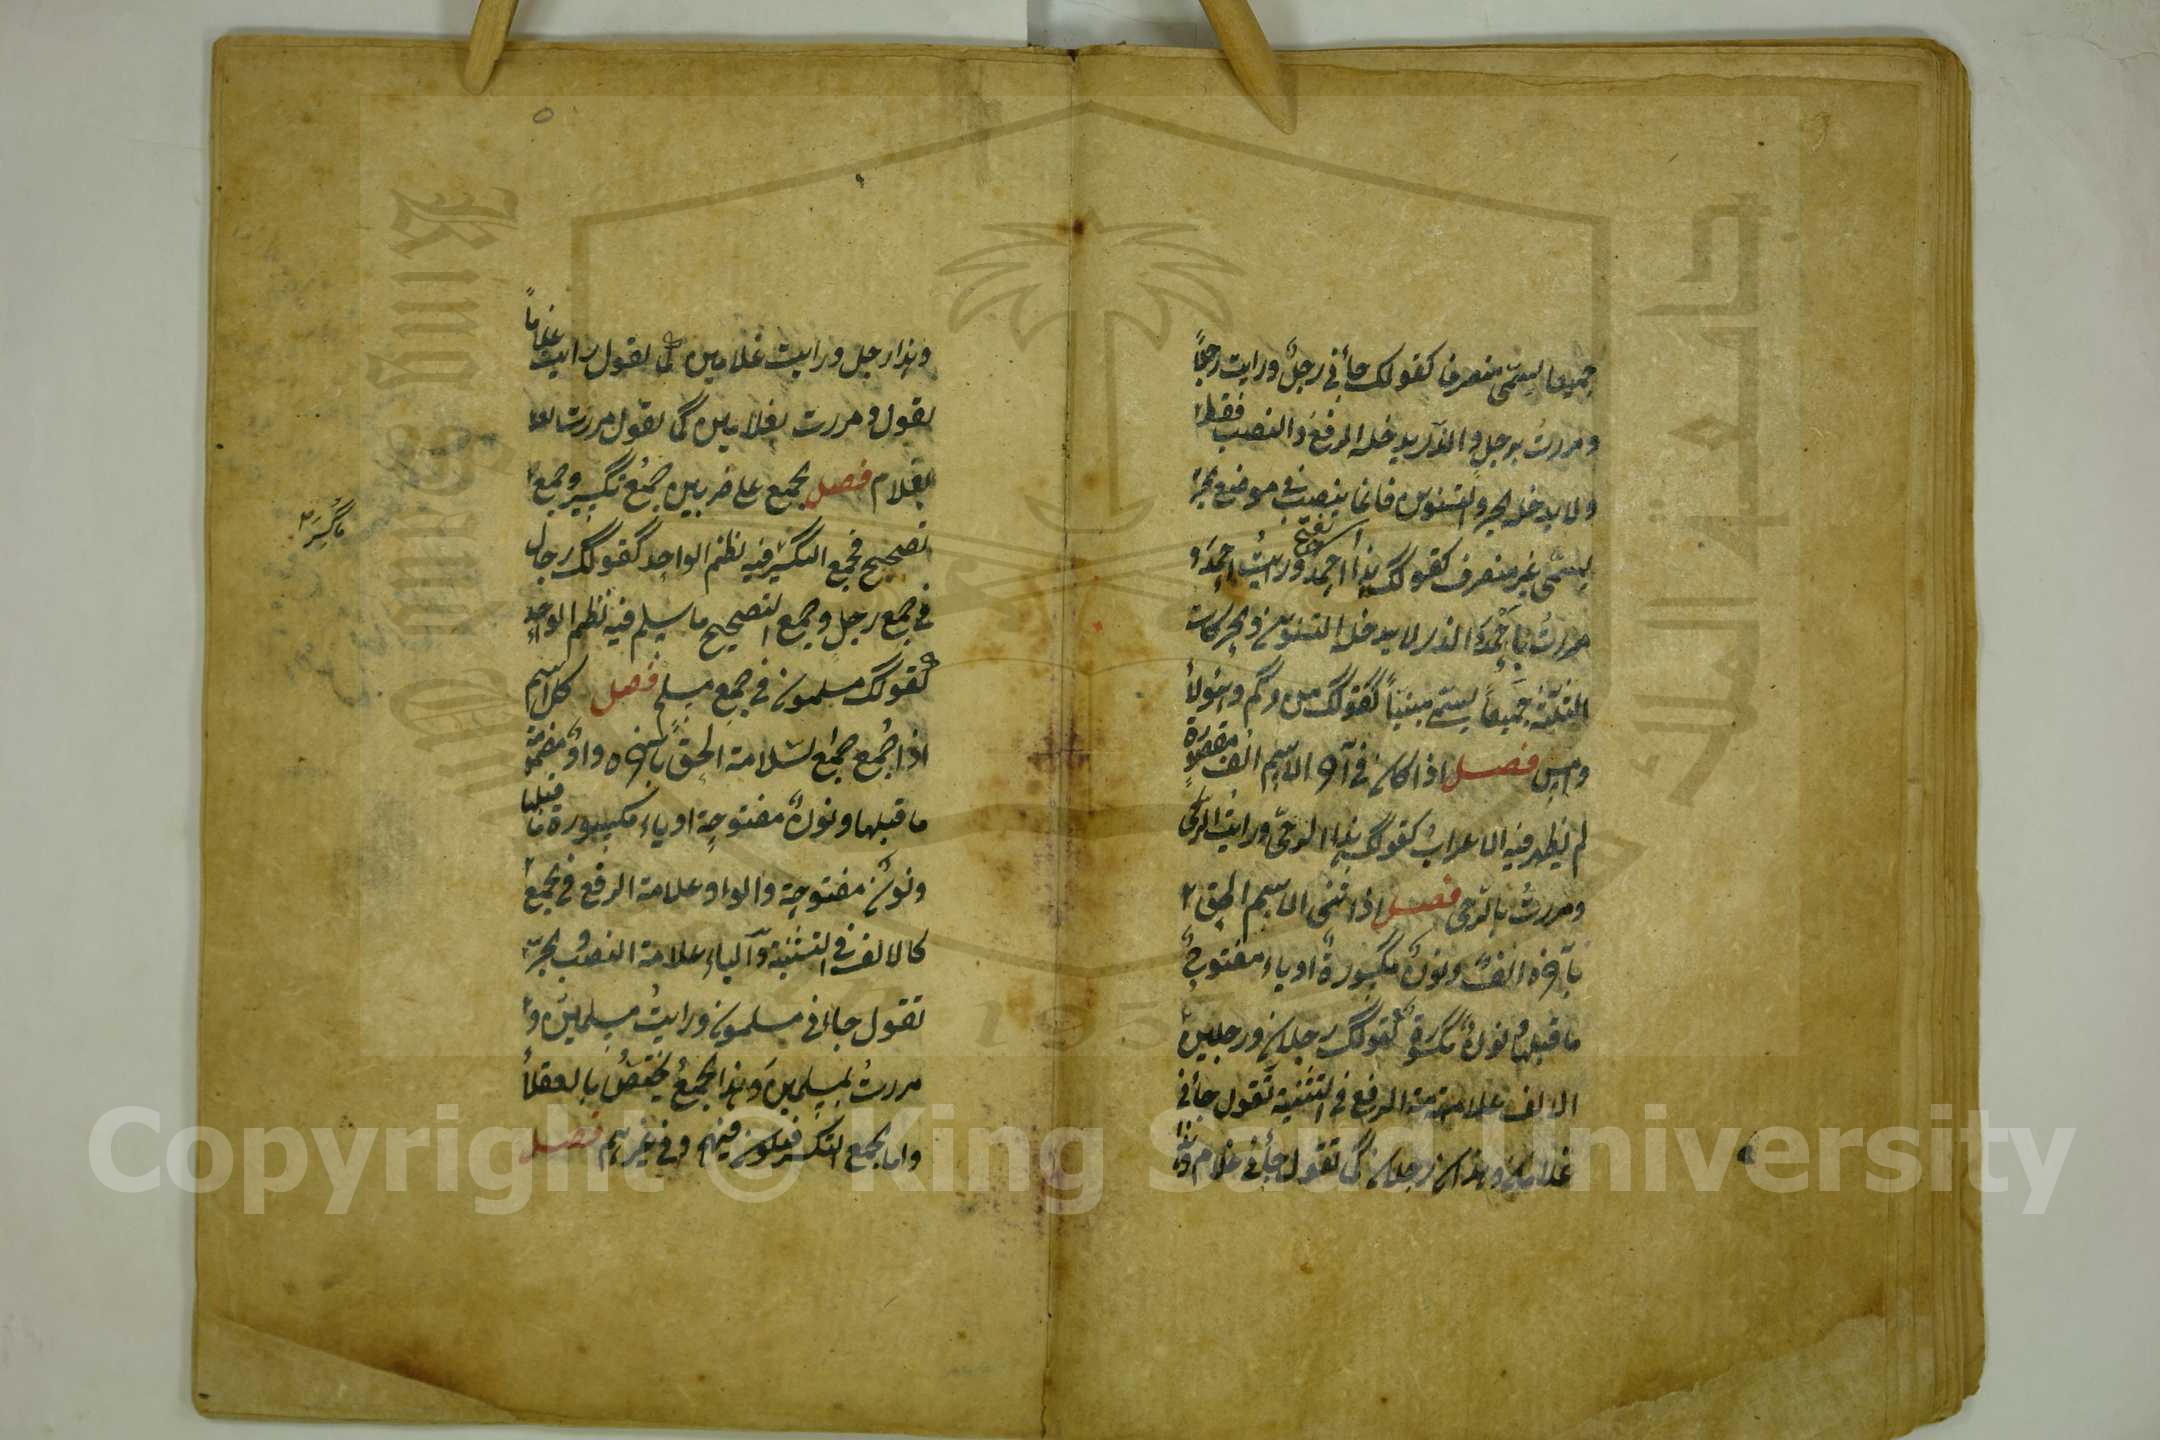 جميعا يسمّى منصرفا كقولك جأنى رجلٌ ورايت رجلًا
ومررتُ برجلٍ والذى يدخله الرفعُ والنصب فقط
ولا يدخله الجر والتنوين فانما ينصب فى موضع الجر
يسمّى غير منصرف كقولك هذا احمدُ ورايتُ احمدَ و
تفتح
مررتُ باحمدَ والذى لا يدخله التنوين والحركات
الثلثة جميعاً يسمّى مبنياً كقولك من وكم وهؤلاءِ
وامسِ فصل اذا كان فى آخر الاسم الف مقصورة
لم يظهر فيه الاعراب كقولك هذا الرحى ورايت الرحى
ومررتُ بالرحى فصل اذا ثنى الاسم الحق
بآخره الفٌ ونونٌ مكسورةٌ او ياء مفتوح
ما قبلها ونونٌ مكسورة كقولك رجلان ورجلين
الالف علامة الرفع فى التثنية تقول جأنى
غلامان وهذان رجلان كما تقول جأنى غلام وهذا
٥
وهذا رجل ورايت غلامين كما تقول رايت غلاماً
تقول ومررت بغلامين كما تقول مررت
بغلام فصل الجمع على ضربين جمعُ تكسيرٍ وجمع
تصحيح فجمع التكسير فيه نظم الواحد كقولك رجال
ما كُسِرَ
فى جمع رجلٍ وجمع التصحيح ما سلم فيه نظم الواحد
كقولك مسلمون فى جمع مسلم فصل كل اسم
اذا جُمع جمعُ السلامة الحق بآخره واوٌ مضموم
ما قبلها ونونٌ مفتوحة او ياء مكسورة ما قبلها
ونونٌ مفتوحة والواو علامة الرفع فى الجمع
كالالف فى التثنية والياء علامة النصب والجر
تقول جاانى مسلمون ورايتُ مسلمين و
مررتُ بمسلمينَ وهذا الجمعُ يختصُّ بالعقلاء
واما الجمع التكسر فيكون فيهم وفى غيرهم فصل
Copyright © King Saud University
1957